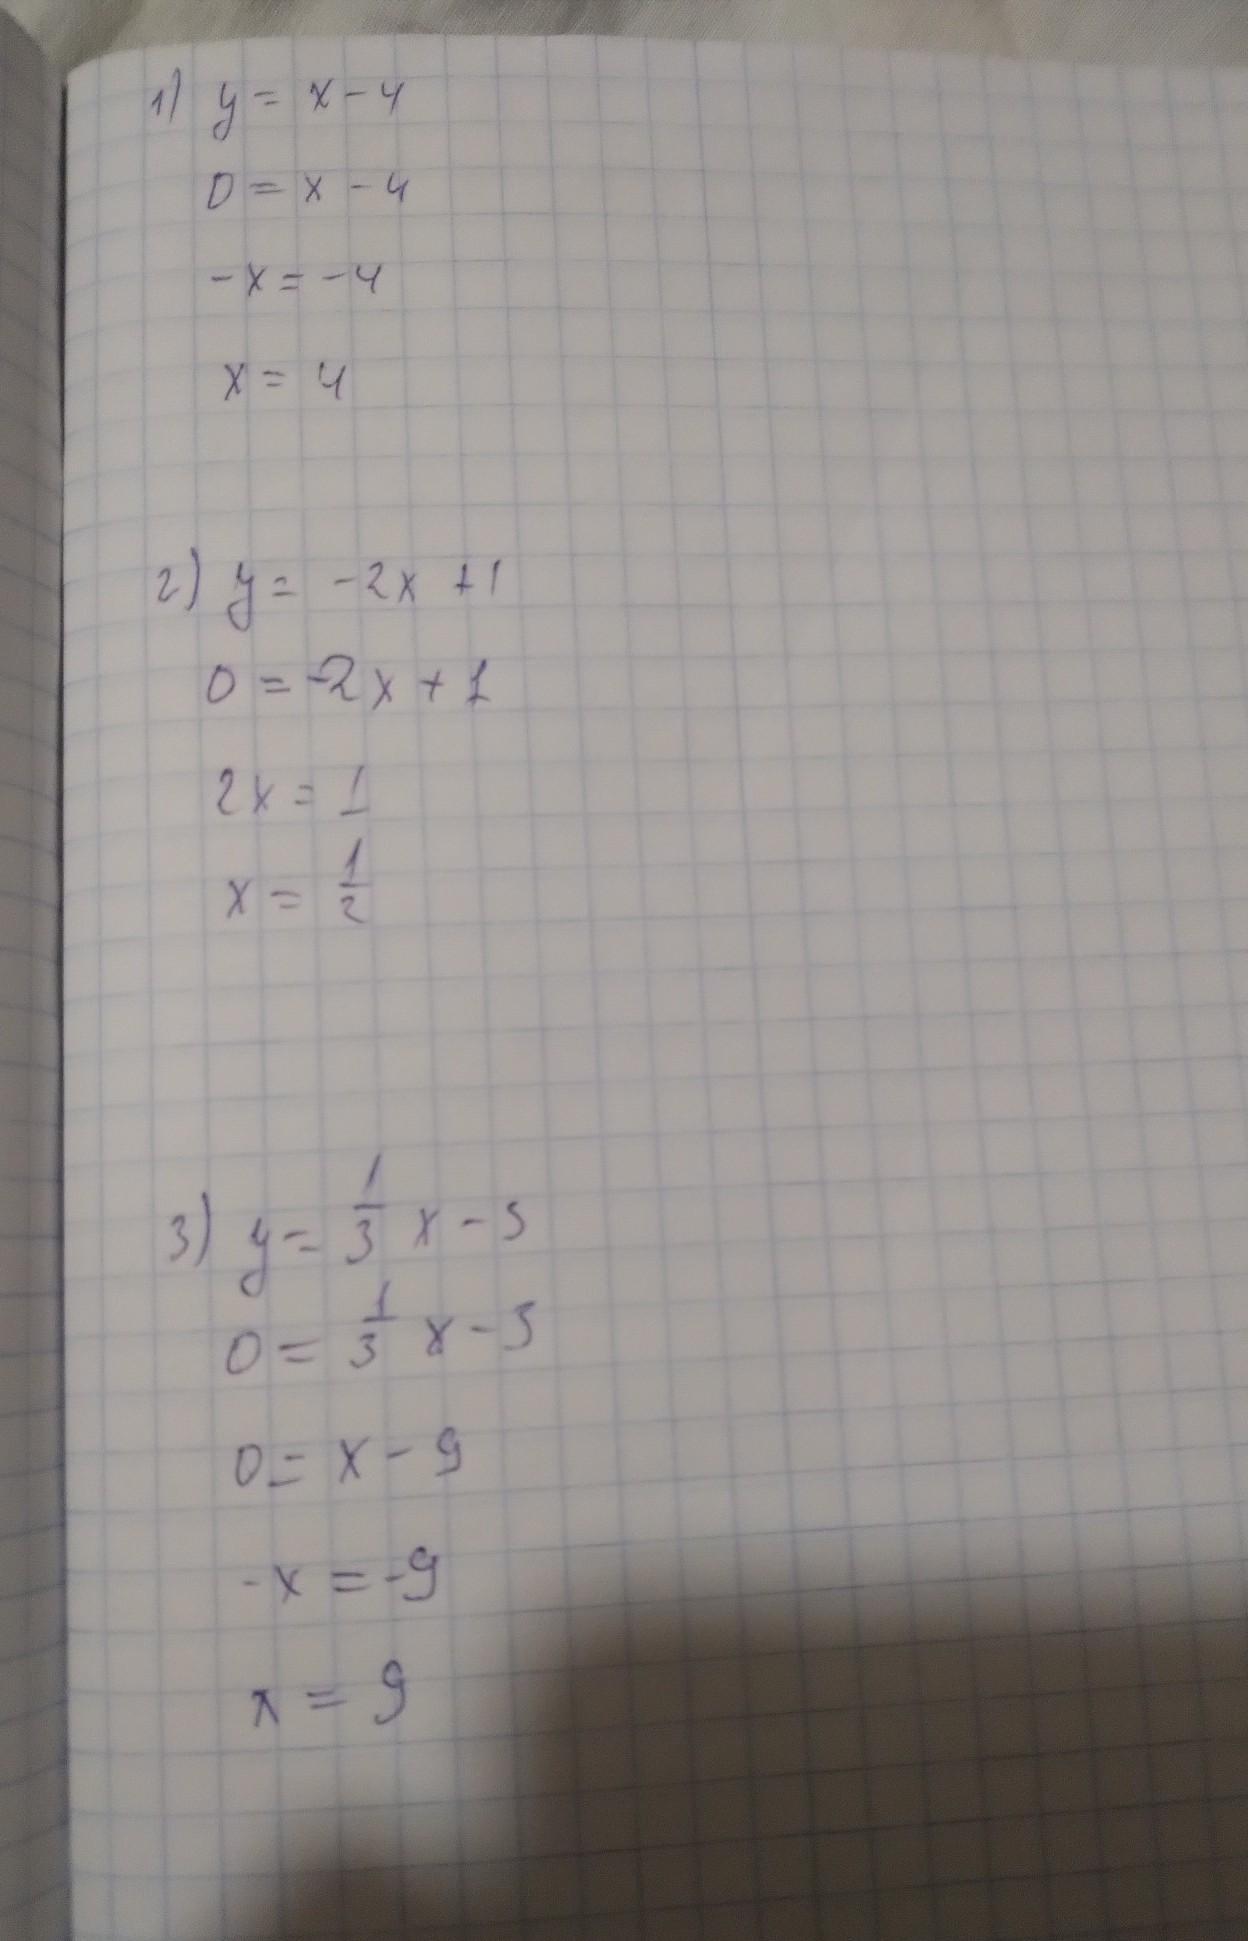 1) y = x - 4
0 = x - 4
-x = -4
x = 4
2) y = -2x + 1
0 = -2x + 1
2x = 1
x = 1/2
3) y = 1/3 x - 3
0 = 1/3 x - 3
0 = x - 9
-x = -9
x = 9